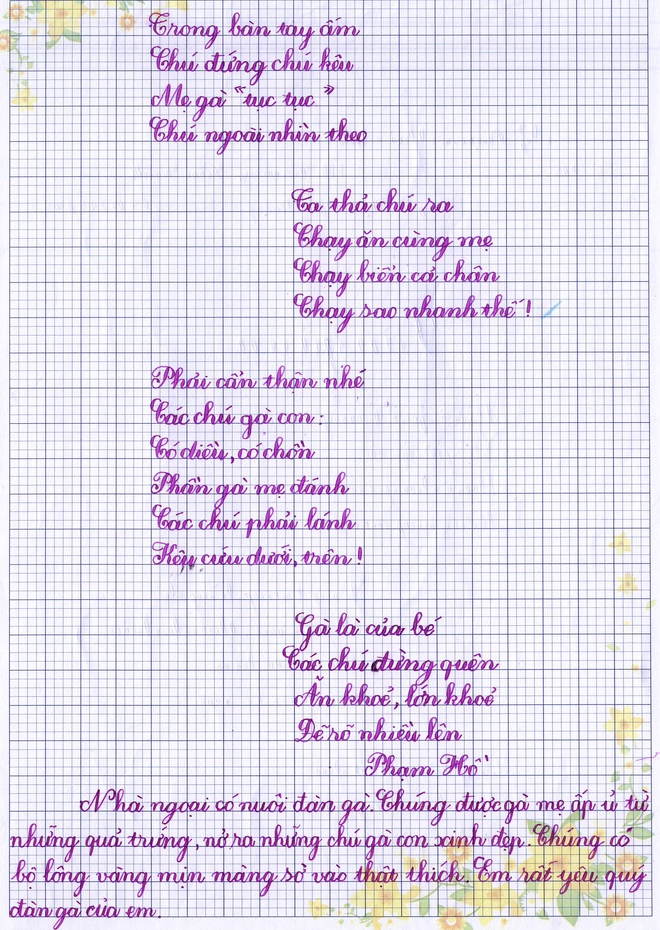 Trong bàn tay ấm
Chú đứng chú kêu
Mẹ gà "tục tục"
Chú ngoài nhìn theo
Ta thả chú ra
Chạy ăn cùng mẹ
Chạy biến cả chân
Chạy sao nhanh thế!
Phải cẩn thận nhé
Các chú gà con:
Có diều, có chồn
Phần gà mẹ đánh
Các chú phải lánh
Kêu cứu dưới, trên!
Gà là của bé
Các chú đừng quên
Ăn khoẻ, lớn khoẻ
Đẽ rõ nhiều lên
Phạm Hổ
Nhà ngoại có nuôi đàn gà. Chúng được gà mẹ ấp ủ từ
những quả trứng, nở ra những chú gà con xinh đẹp. Chúng có
bộ lông vàng mịn màng sờ vào thật thích. Em rất yêu quý
đàn gà của em.